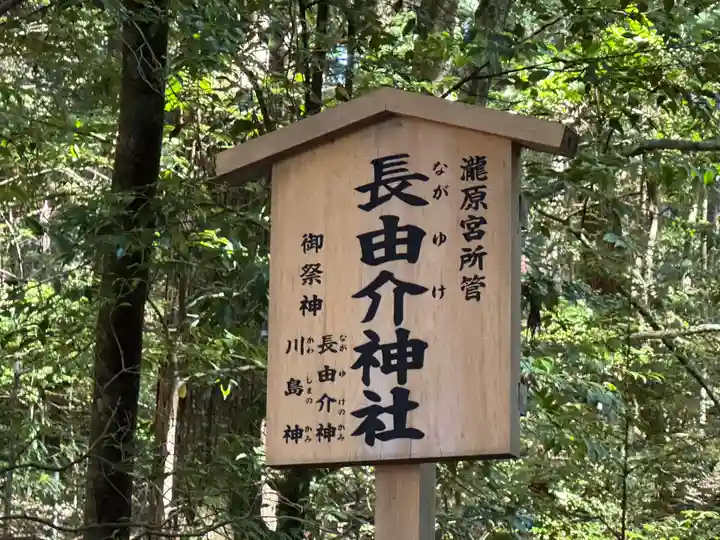 瀧原宮所管
長由介神社
ながゆけ
御祭神
長由介神
ながゆけのかみ
川島神
かわしまのかみ